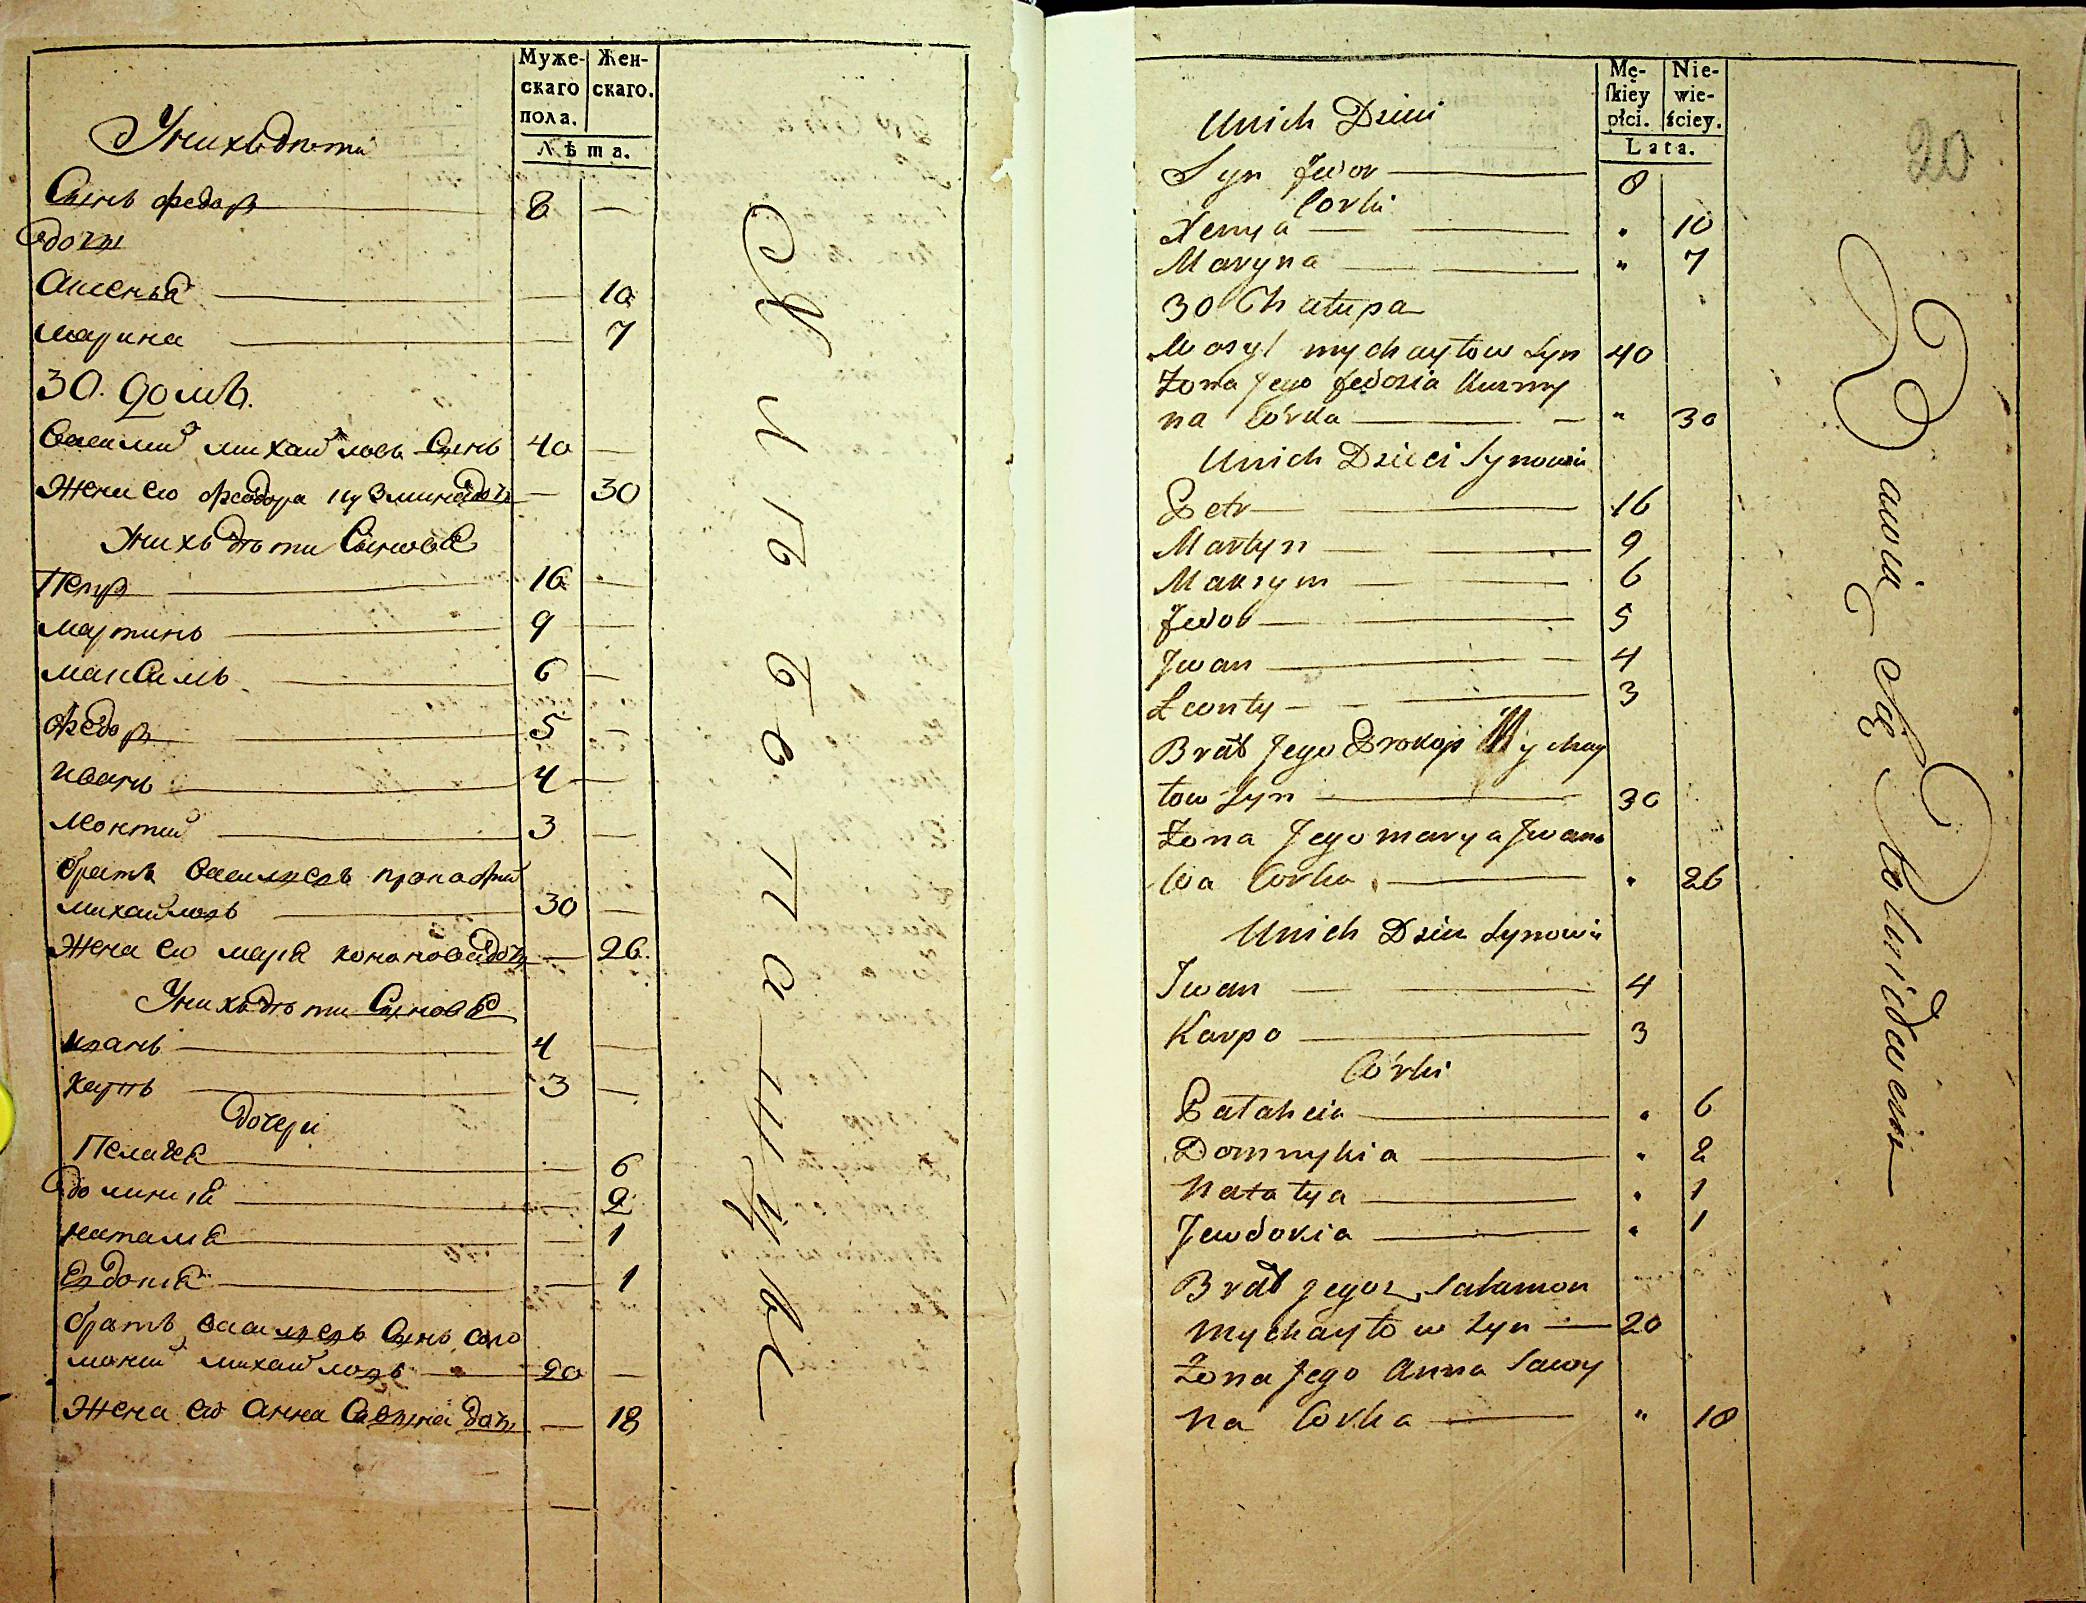 Муже-
скаго
пола.
Жен-
скаго.
Лѣта.
Унихъ дѣти
Сынъ федор 8 —
дочы
Аксенья — 10
марина — 7
30. домъ.
Василий михайловъ Сынъ 40 —
Жена его феодора кузмина дочь — 30
Унихъ дѣти Сыновья
Петр 16 —
мартинъ 9 —
максимъ 6 —
федор 5 —
иванъ 4 —
леонтий 3 —
братъ василъевъ прокофий
михайловъ 30 —
Жена его марія кононова дочь — 26.
Унихъ дѣти Сыновья
иванъ 4 —
карпъ 3 —
дочери
Пелагея — 6
доминикія — 2
наталія — 1
Евдокія — 1
братъ василъевъ Сынъ соло
моний михайловъ 20 —
Жена его Анна Саввина дочь — 18
Mę-
ſkiey
płci.
Nie-
wie-
ściey.
Lata.
20
Unich Dzieci
Syn fedor 8
Corki
Xenya " 10
Maryna " 7
30 Chałupa
Wasyl mychayłow Syn 40
Żona Jego fedosia Kuzmy
na Córka " 30
Unich Dzieci Synowie
Petr 16
Martyn 9
Maksym 6
fedor 5
Jwan 4
Leonty 3
Brat Jego Prokop Mychay
łow Syn 30
Żona Jego marya Jwano
wa Corka " 26
Unich Dzieci Synowie
Jwan 4
Karpo 3
Córki
Pałaheia " 6
Domnykia " 2
Natalya " 1
Jewdokia " 1
Brat Jegoz Sałamon
Mychayłow Syn 20
Żona Jego Anna Sawy
na Corka " 18